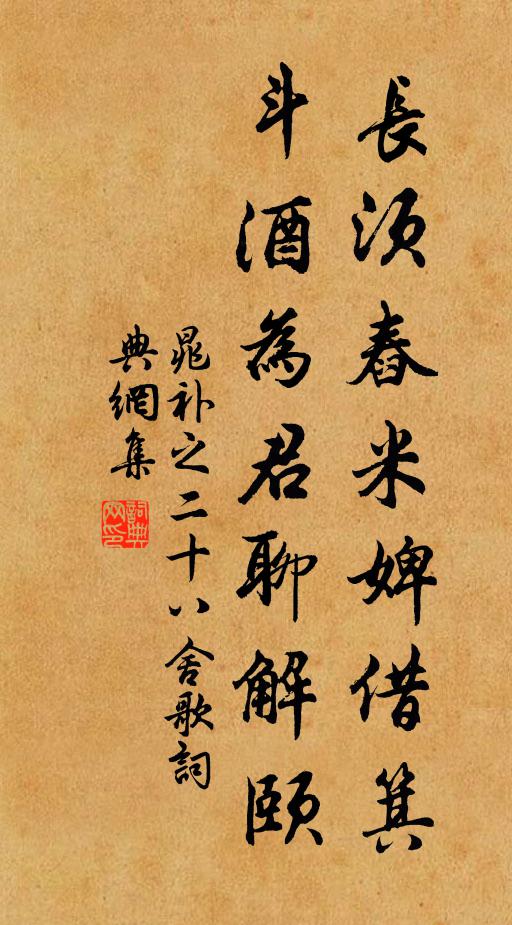 長須舂米婢借箕
斗酒為君聊解頤
晁补之二十八舍歌詞
典網集
詞典網印